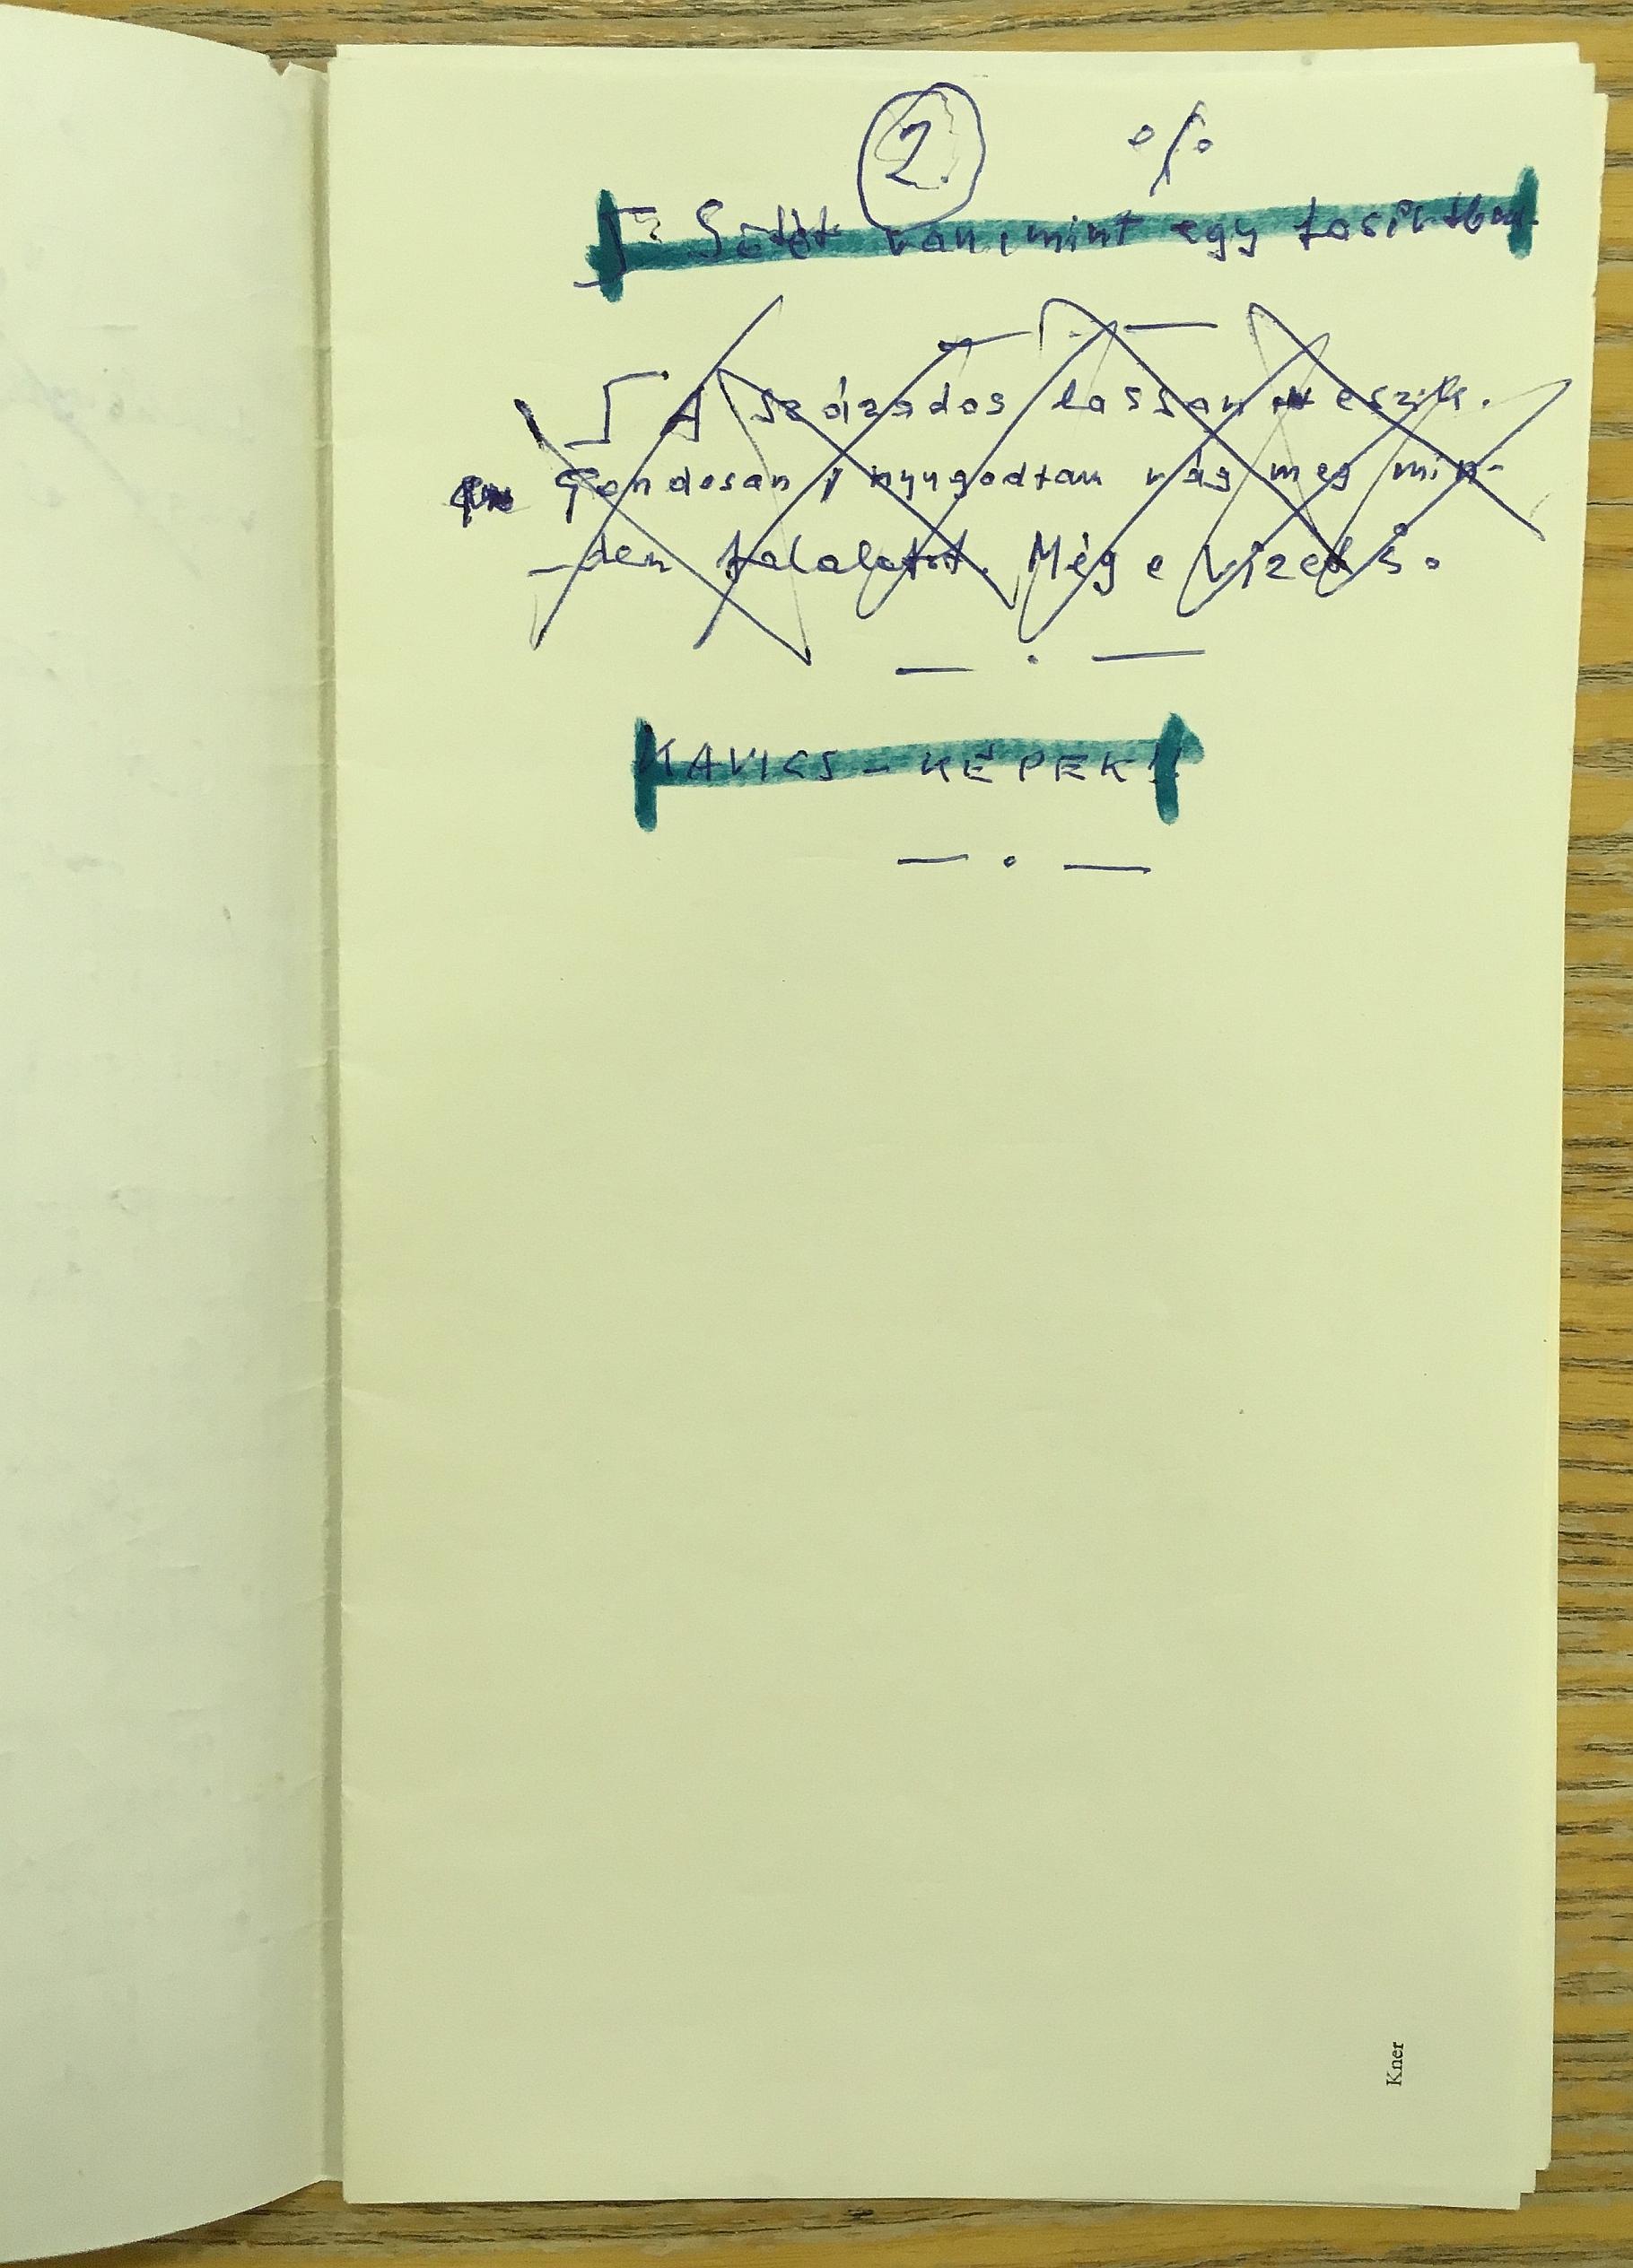 2. %
Sötét van, mint egy fasírtban.
— . —
A százados lassan eszik.
Gondosan, nyugodtan rág meg min-
-den falatot. Még e vizet is.
— . —
KAVICS - KÉPEK!
— . —
Kner